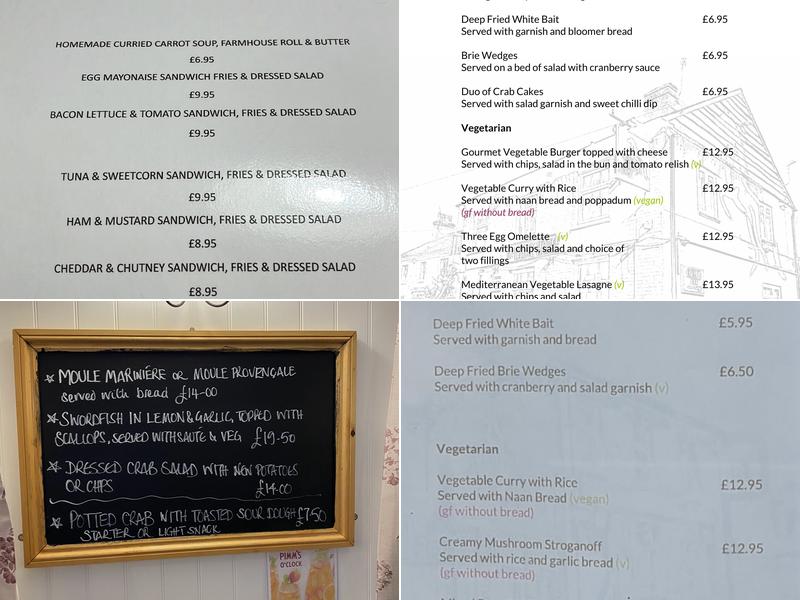 HOMEMADE CURRIED CARROT SOUP, FARMHOUSE ROLL & BUTTER
£6.95
EGG MAYONAISE SANDWICH FRIES & DRESSED SALAD
£9.95
BACON LETTUCE & TOMATO SANDWICH, FRIES & DRESSED SALAD
£9.95
TUNA & SWEETCORN SANDWICH, FRIES & DRESSED SALAD
£9.95
HAM & MUSTARD SANDWICH, FRIES & DRESSED SALAD
£8.95
CHEDDAR & CHUTNEY SANDWICH, FRIES & DRESSED SALAD
£8.95
Deep Fried White Bait £6.95
Served with garnish and bloomer bread
Brie Wedges £6.95
Served on a bed of salad with cranberry sauce
Duo of Crab Cakes £6.95
Served with salad garnish and sweet chilli dip
Vegetarian
Gourmet Vegetable Burger topped with cheese £12.95
Served with chips, salad in the bun and tomato relish (v)
Vegetable Curry with Rice £12.95
Served with naan bread and poppadum (vegan)
(gf without bread)
Three Egg Omelette (v) £12.95
Served with chips, salad and choice of
two fillings
Mediterranean Vegetable Lasagne (v) £13.95
Served with chips and salad
MOULE MARINIÉRE OR MOULE PROVENÇALE
served with bread £14-00
SWORDFISH IN LEMON & GARLIC, TOPPED WITH
SCALLOPS, SERVED WITH SAUTÉ & VEG £19-50
DRESSED CRAB SALAD WITH NEW POTATOES
OR CHIPS £14.00
POTTED CRAB WITH TOASTED SOUR DOUGH £7.50
STARTER OR LIGHT SNACK
PIMM'S
O'CLOCK
Deep Fried White Bait £5.95
Served with garnish and bread
Deep Fried Brie Wedges £6.50
Served with cranberry and salad garnish (v)
Vegetarian
Vegetable Curry with Rice £12.95
Served with Naan Bread (vegan)
(gf without bread)
Creamy Mushroom Stroganoff £12.95
Served with rice and garlic bread (v)
(gf without bread)